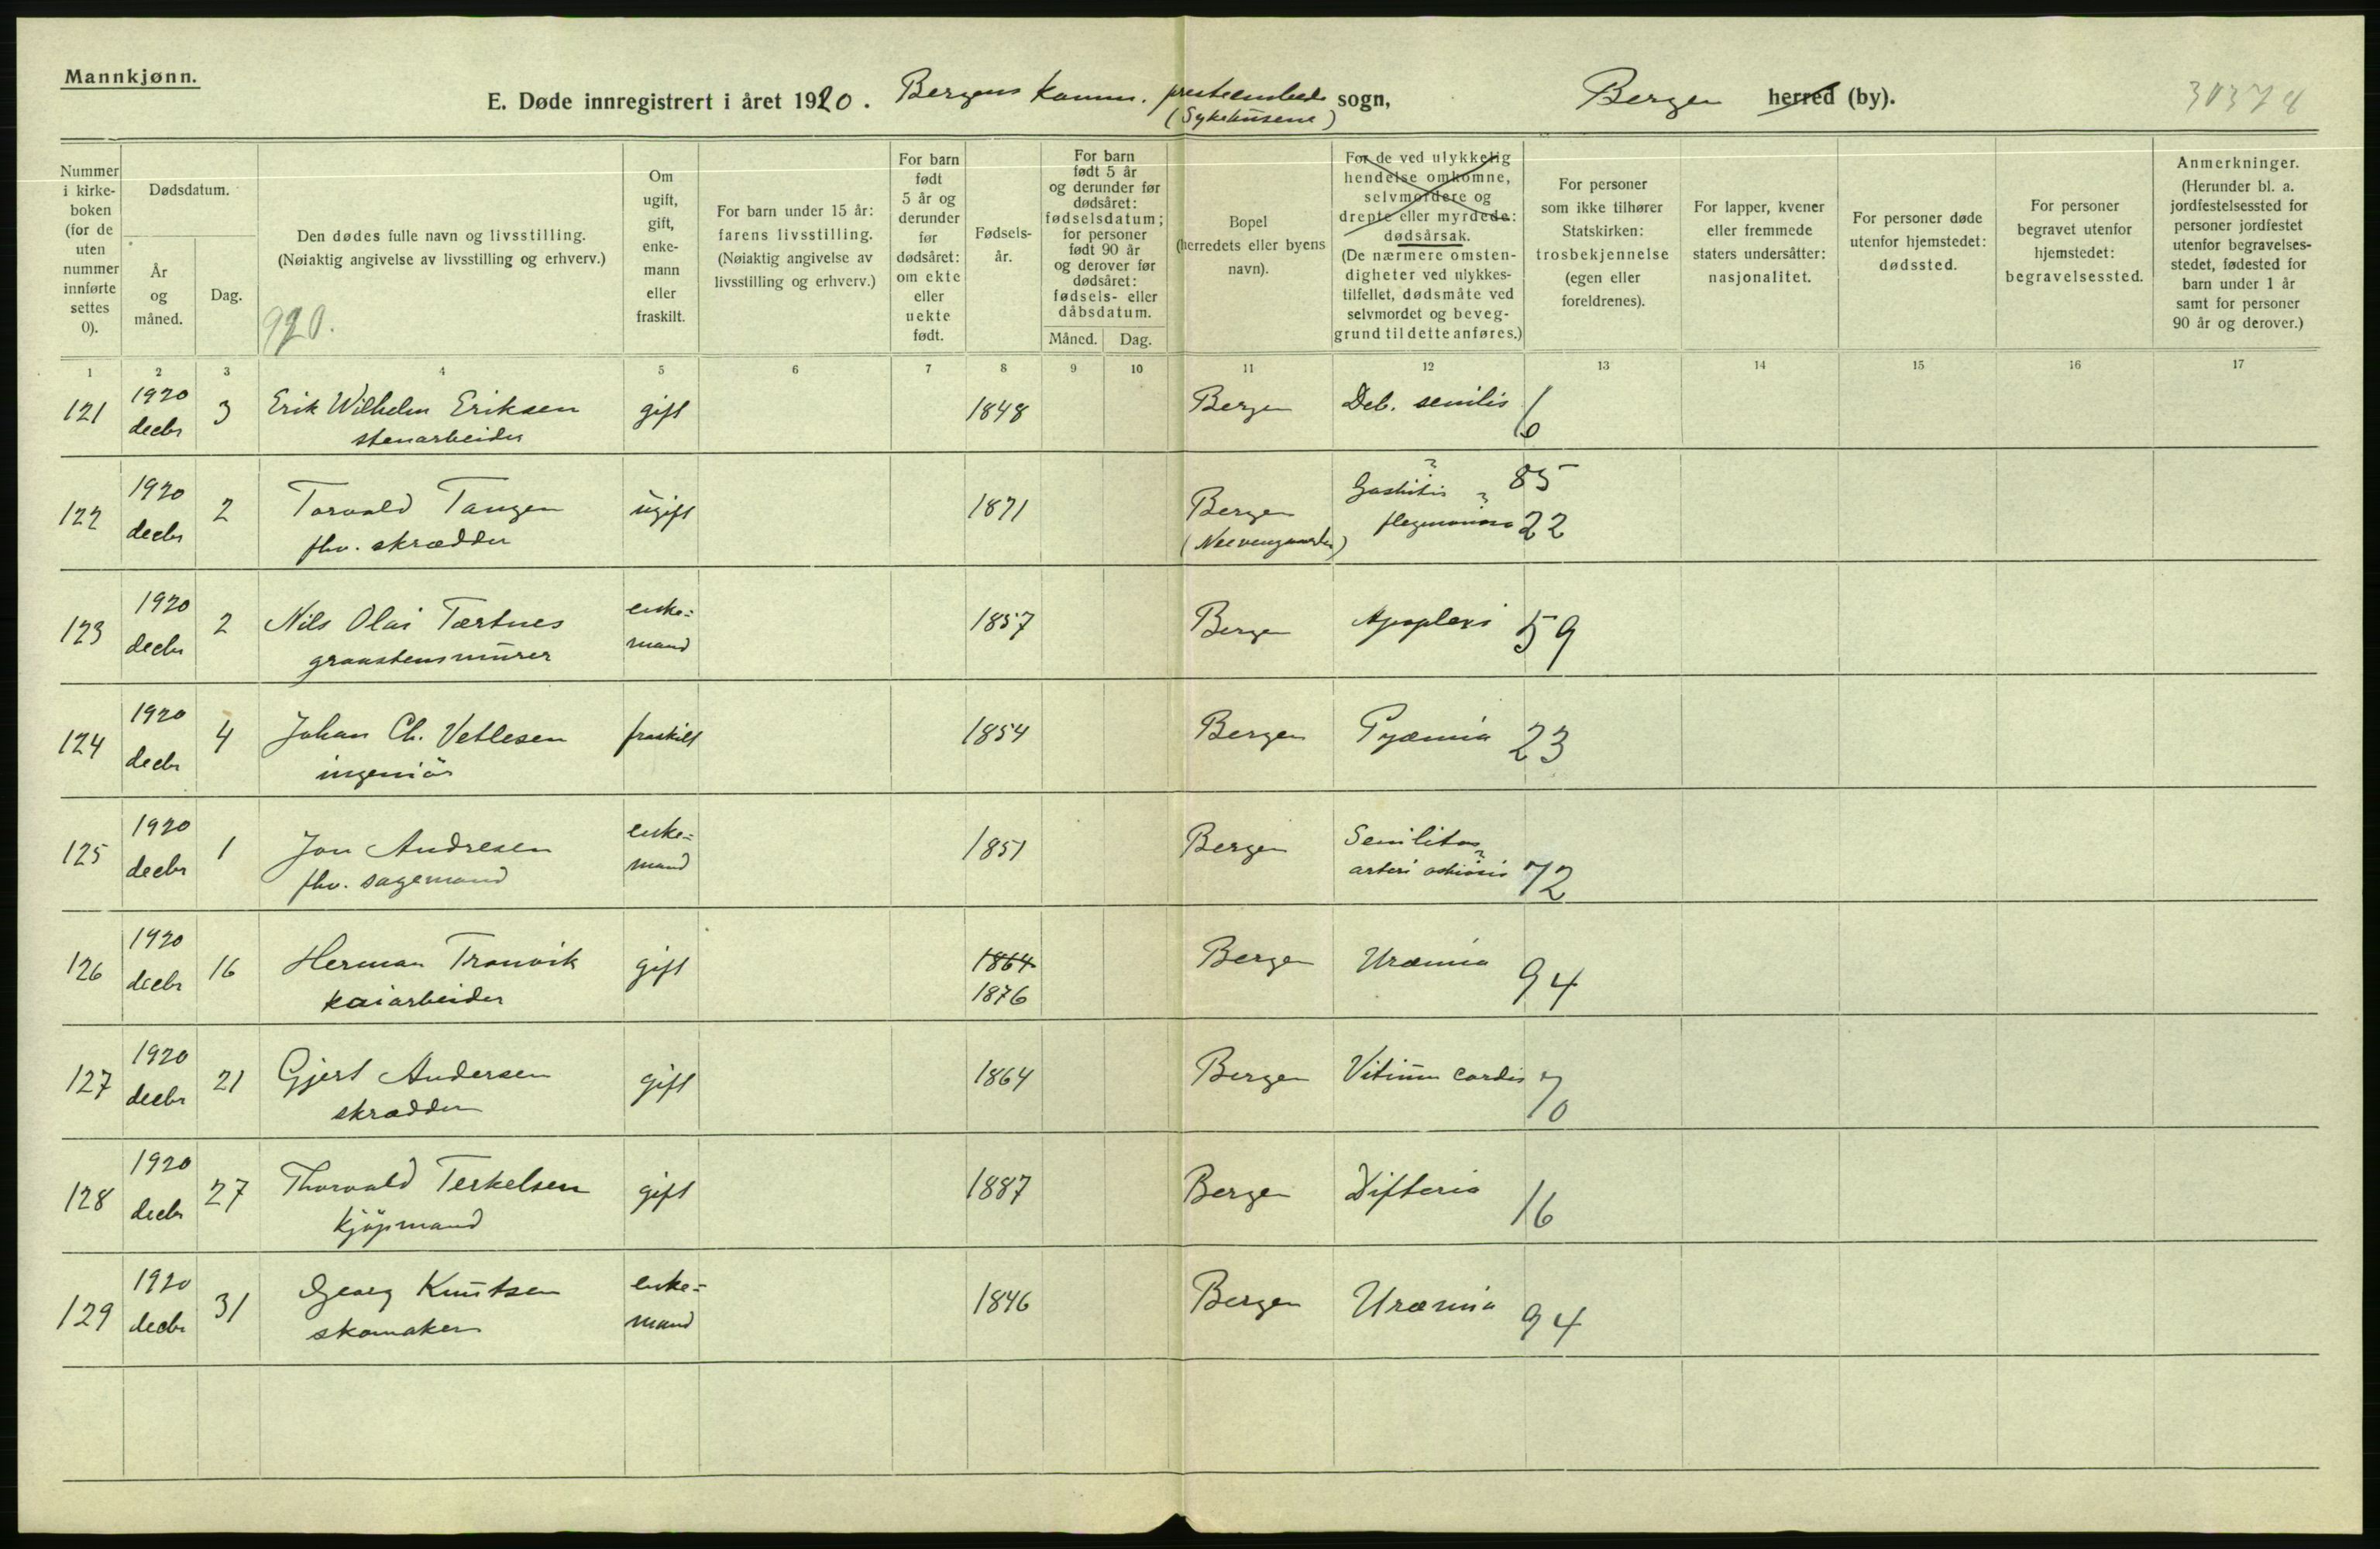 Mannkjønn.
E. Døde innregistrert i året 1920. Bergens komm. presteembede sogn, Bergen herred (by). 30378
(Sykehusene)
Nummer i kirke-boken (for de uten nummer innførte settes 0).
Dødsdatum.
År og måned.
Dag.
Den dødes fulle navn og livsstilling.
(Nøiaktig angivelse av livsstilling og erhverv.)
920.
Om ugift, gift, enke-mann eller fraskilt.
For barn under 15 år:
farens livsstilling.
(Nøiaktig angivelse av
livsstilling og erhverv.)
For barn født 5 år og derunder før dødsåret: om ekte eller uekte født.
Fødsels-år.
For barn
født 5 år
og derunder før
dødsåret:
fødselsdatum;
for personer
født 90 år
og derover før
dødsåret:
fødsels- eller
dåbsdatum.
Måned. Dag.
Bopel
(herredets eller byens
navn).
For de ved ulykkelig
hendelse omkomne,
selvmordere og
drepte eller myrdede:
dødsårsak.
(De nærmere omsten-
digheter ved ulykkes-
tilfellet, dødsmåte ved
selvmordet og beveg-
grund til dette anføres.)
For personer
som ikke tilhører
Statskirken:
trosbekjennelse
(egen eller
foreldrenes).
For lapper, kvener
eller fremmede
staters undersåtter:
nasjonalitet.
For personer døde
utenfor hjemstedet:
dødssted.
For personer
begravet utenfor
hjemstedet:
begravelsessted.
Anmerkninger.
(Herunder bl. a.
jordfestelsessted for
personer jordfestet
utenfor begravelses-
stedet, fødested for
barn under 1 år
samt for personer
90 år og derover.)
1 2 3 4 5 6 7 8 9 10 11 12 13 14 15 16 17
121 1920 decbr 3 Erik Wilhelm Eriksen gift 1848 Bergen Deb. senilis 6
stenarbeider
122 1920 decbr 2 Torvald Tangen ugift 1871 Bergen Gastritis ? 85
fhv. skrædder (Neevengaarden) flegmonosa ? 22
123 1920 decbr 2 Nils Olai Tærtnes enke-mand 1857 Bergen Apoplexi 59
graastensmurer
124 1920 decbr 4 Johan Ch. Vetlesen fraskilt 1854 Bergen Pyæmia 23
ingeniör
125 1920 decbr 1 Jon Andresen enke-mand 1851 Bergen Senilitas
fhv. sagemand arteri 72
126 1920 decbr 16 Herman Tranvik gift 1864 Bergen Uræmia 94
kaiarbeider 1876
127 1920 decbr 21 Gjert Andersen gift 1864 Bergen Vitium cordis 70
skrædder
128 1920 decbr 27 Thorvald Terkelsen gift 1887 Bergen Difteria 16
kjöpmand
129 1920 decbr 31 Georg Knutsen enke-mand 1846 Bergen Uræmia 94
skomaker